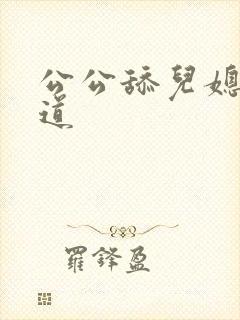 公公舔兒媳
道
羅鋒盈